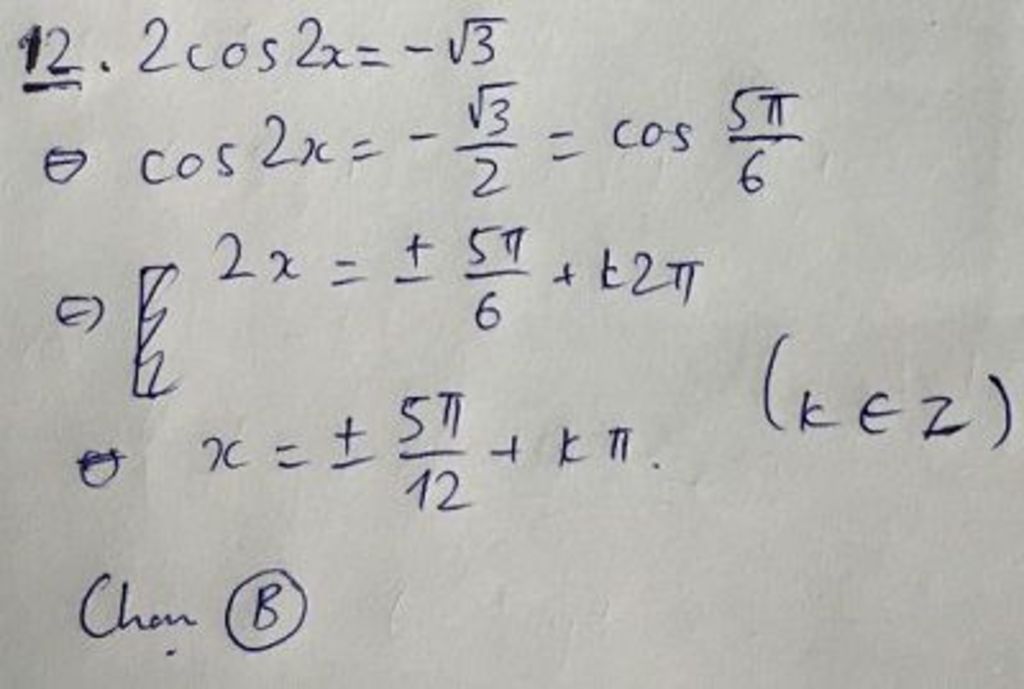 12. 2cos2x = -√3
⇔ cos 2x = -√3/2 = cos 5π/6
⇔ 2x = ± 5π/6 + k2π
⇔ x = ± 5π/12 + kπ. (k ∈ Z)
Chọn B